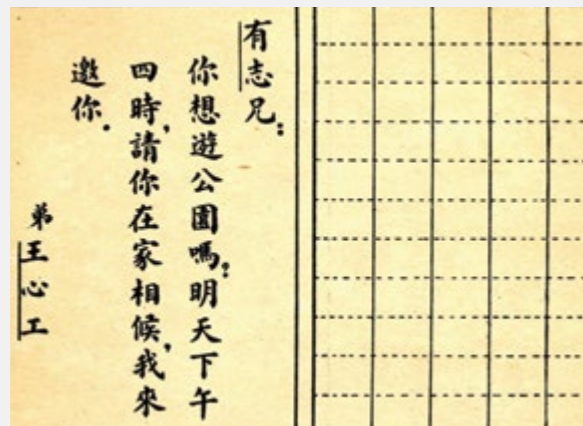 有志兄：
你想遊公園嗎？明天下午
四時，請你在家相候，我來
邀你．
弟王心工